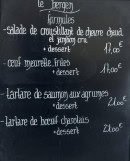 le bergen
formules
-salade de croustillant de chèvre chaud
et jambon cru
+ dessert 17,00€
-œuf meurette, frites
+ dessert 17,00€
-tartare de saumon aux agrumes
+ dessert 21,00€
-tartare de bœuf charolais
+ dessert 21,00€